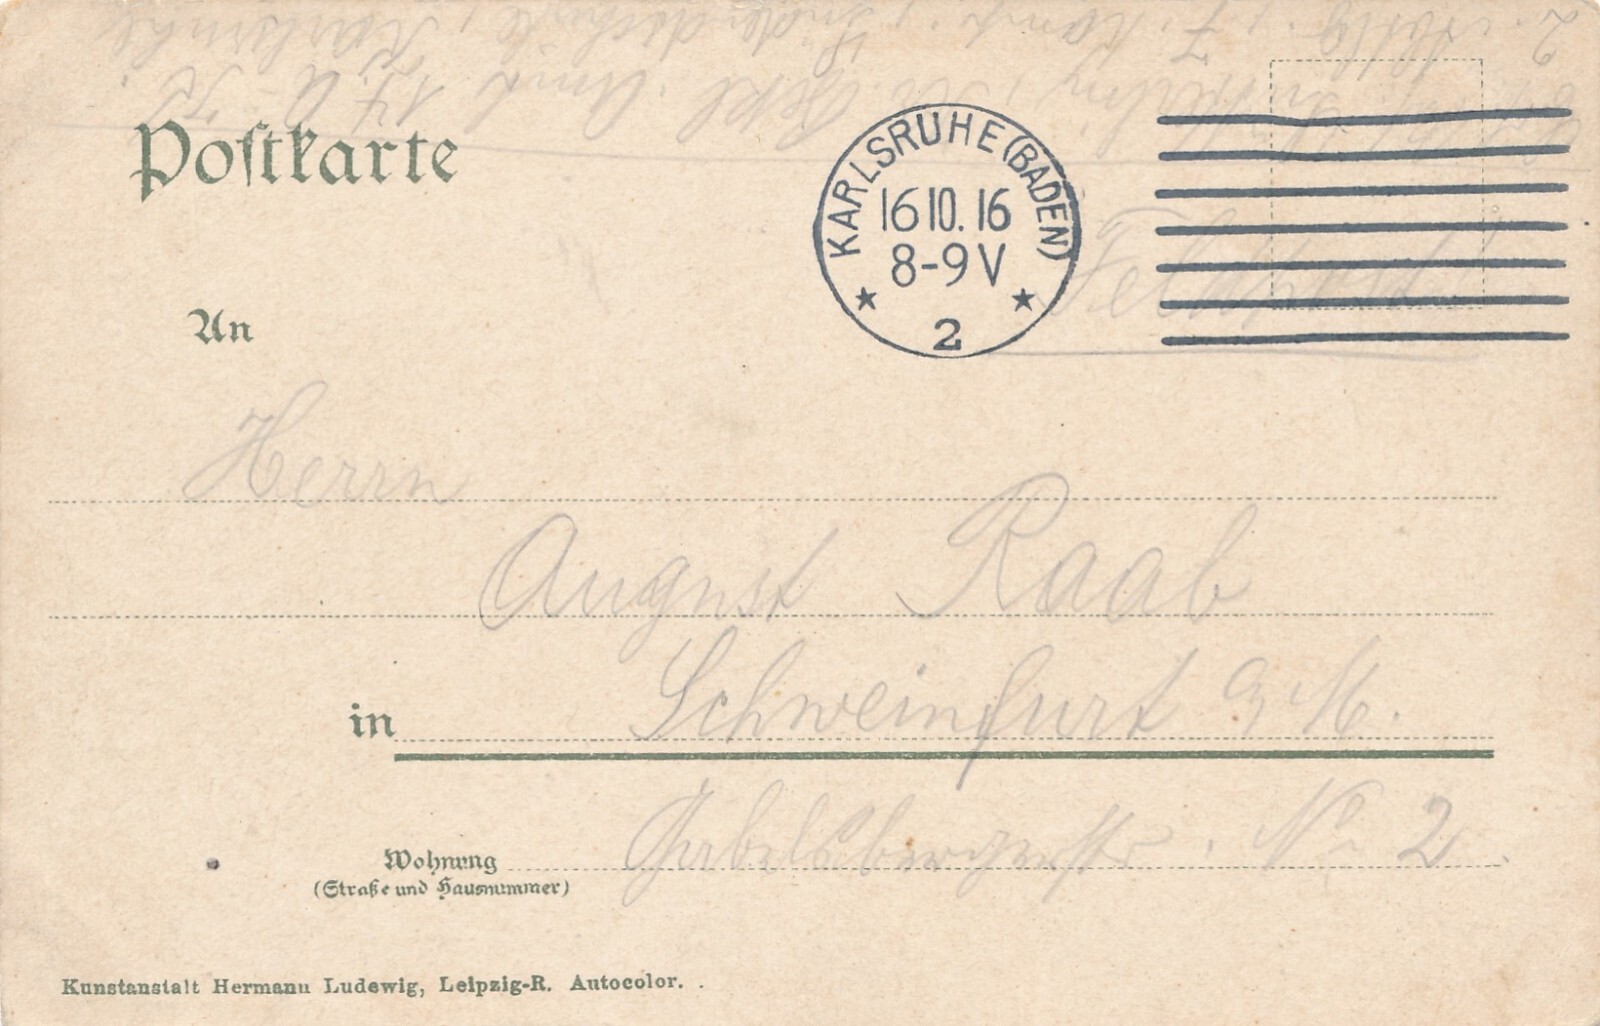 Postkarte
KARLSRUHE (BADEN)
16 10. 16
8-9 V
2
Feldpost
An
Herrn
August Raab
in Schweinfurt a/M.
Wohnung Gabelsbergerstr. No 2
(Straße und Hausnummer)
Kunstanstalt Hermann Ludewig, Leipzig-R. Autocolor.